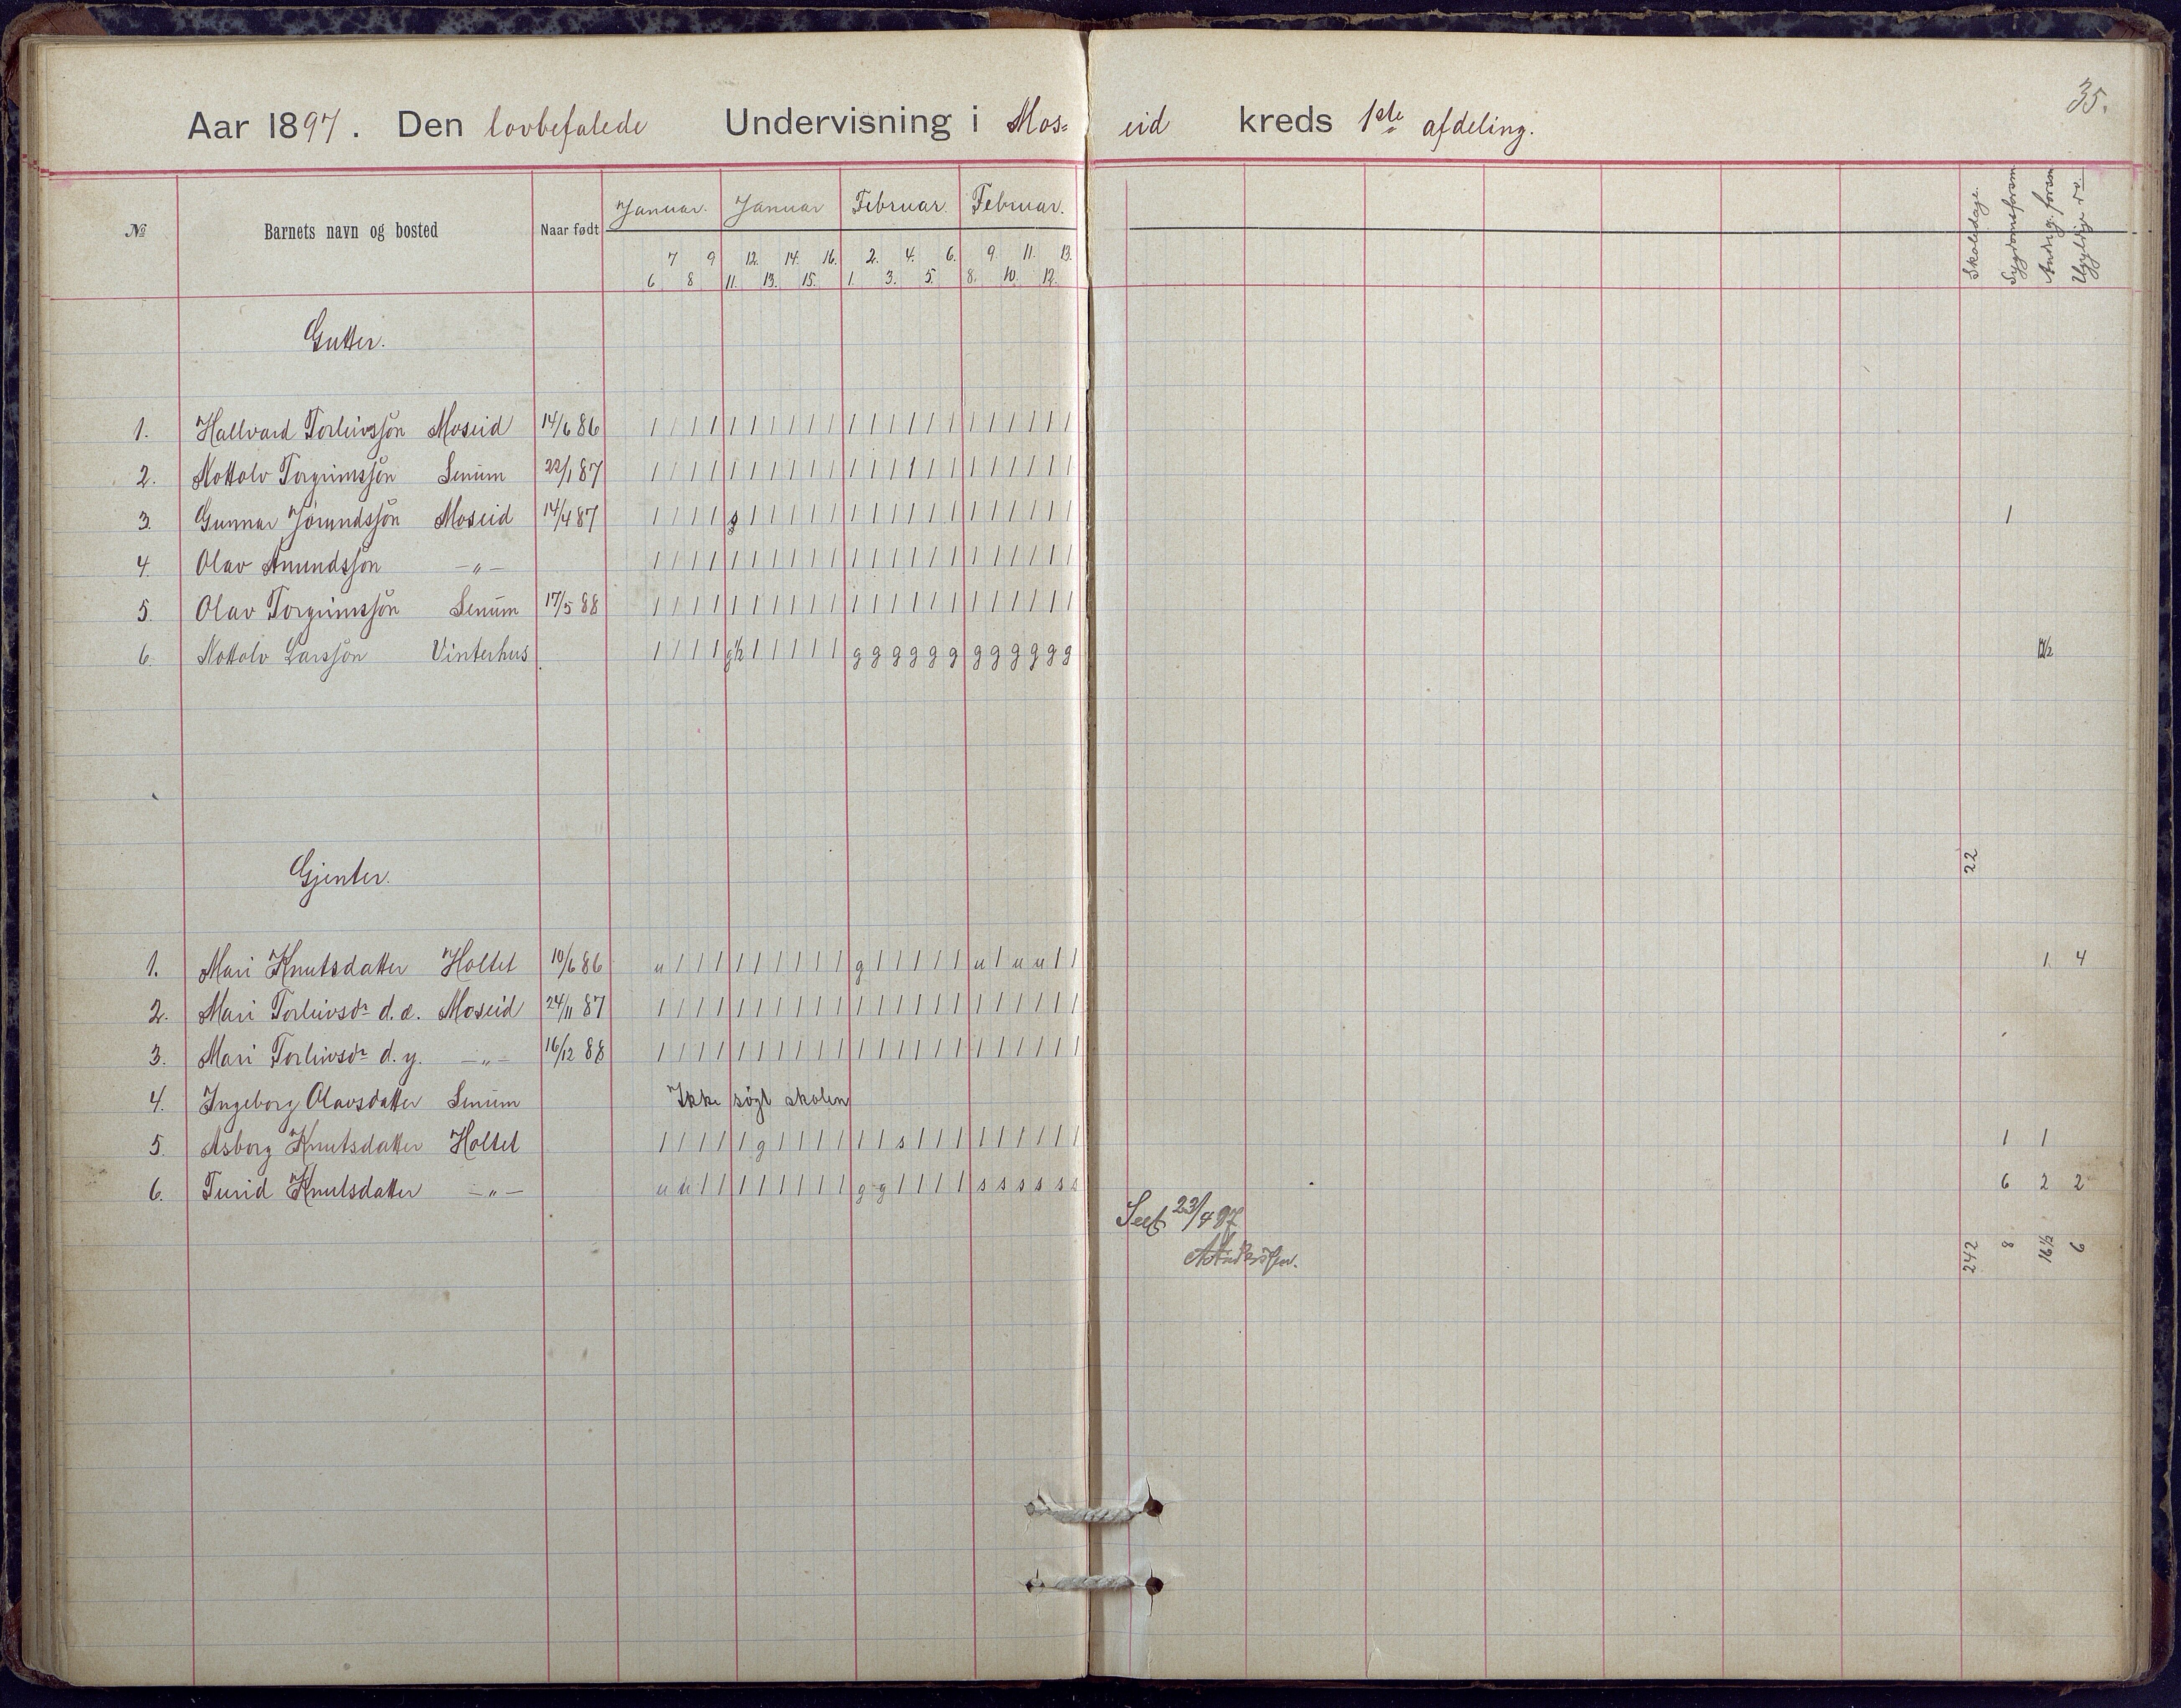 35.
Aar 1897. Den lovbefalede Undervisning i Mos= eid kreds 1ste afdeling.
№ Barnets navn og bosted Naar født Januar. Januar Februar. Februar. Skoledage. Sygdomsforsøm Andre g. forsøm Ugyldige do.
7 9 12. 14. 16. 2. 4. 6. 9. 11. 13.
6 8 11. 13. 15. 1. 3. 5. 8. 10. 12.
Gutter.
1. Hallvard Torleivssøn Moseid 14/6 86 | | | | | | | | | | | | | | | | | | | | | |
2. Nottolv Torgrimssøn Senum 22/1 87 | | | | | | | | | | | | | | | | | | | | | |
3. Gunnar Jørundssøn Moseid 14/4 87 | | | | s | | | | | | | | | | | | | | | | | 1
4. Olav Amundssøn —"— | | | | | | | | | | | | | | | | | | | | | |
5. Olav Torgrimssøn Senum 17/5 88 | | | | | | | | | | | | | | | | | | | | | |
6. Nottolv Larssøn Vinterhus | | | | g½ | | | | | g g g g g g g g g g g g 12½
Gjenter. 22
1. Mari Knutsdatter Holtet 10/6 86 u | | | | | | | | | g | | | | | u | u u | | 1. 4
2. Mari Torleivsdr d. e. Moseid 24/11 87 | | | | | | | | | | | | | | | | | | | | | |
3. Mari Torleivsdr d. y. —"— 16/12 88 | | | | | | | | | | | | | | | | | | | | | |
4. Ingeborg Olavsdatter Senum Ikke søgt skolen
5. Asborg Knutsdatter Holtet | | | | | g | | | | | | s | | | | | | | | | 1 1
6. Turid Knutsdatter —"— u u | | | | | | | | g g | | | | s s s s s s 6 2 2
Seet 23/4 97
242 8 16½ 6